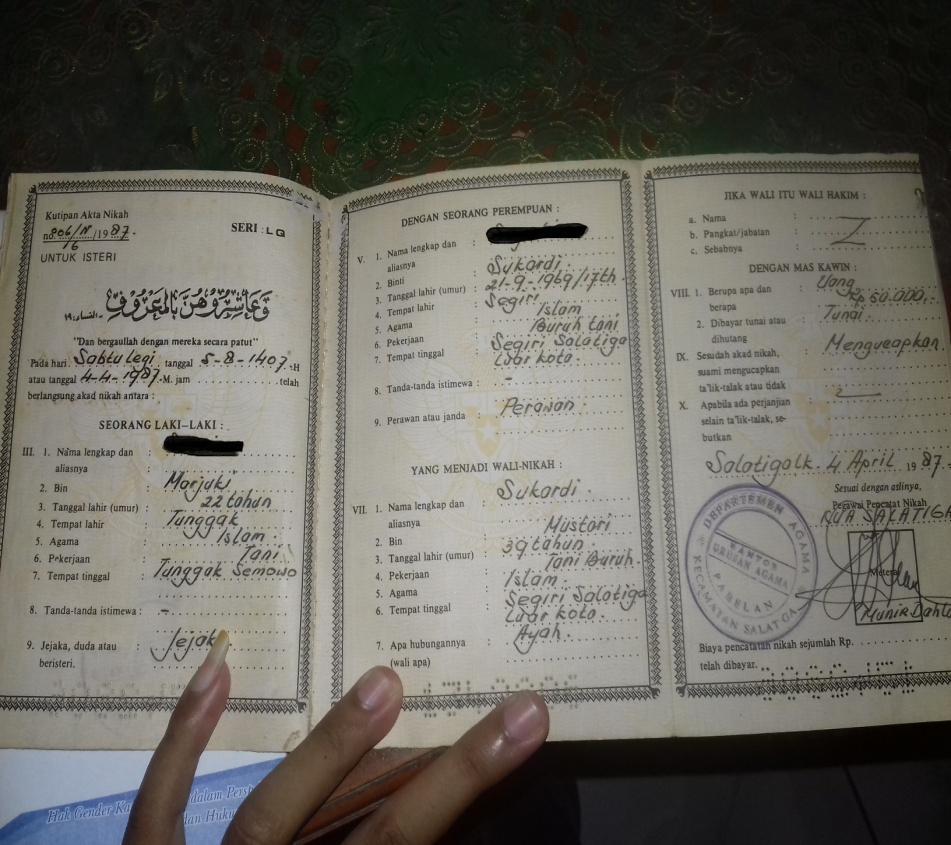 Kutipan Akta Nikah
no. 206/N/16/1987.
SERI : LQ
UNTUK ISTERI
وَعَاشِرُوهُنَّ بِالْمَعْرُوفِ - النساء: ١٩
"Dan bergaullah dengan mereka secara patut"
Pada hari Sabtu legi tanggal 5-8-1407.H
atau tanggal 4-4-1987.M. jam telah
berlangsung akad nikah antara :
SEORANG LAKI-LAKI :
III. 1. Nama lengkap dan :
aliasnya
2. Bin : Marjuki
3. Tanggal lahir (umur) : 22 tahun
4. Tempat lahir : Tunggak
5. Agama : Islam
6. Pekerjaan : Tani
7. Tempat tinggal : Tunggak Semowo
8. Tanda-tanda istimewa : -
9. Jejaka, duda atau : Jejak
beristeri.
DENGAN SEORANG PEREMPUAN :
V. 1. Nama lengkap dan :
aliasnya
2. Binti : Sukardi.
3. Tanggal lahir (umur) : 21-9-1969/17th
4. Tempat lahir : Segiri
5. Agama : Islam
6. Pekerjaan : Buruh tani
7. Tempat tinggal : Segiri Salatiga
Luar kota.
8. Tanda-tanda istimewa : -
9. Perawan atau janda : Perawan
YANG MENJADI WALI-NIKAH :
VII. 1. Nama lengkap dan : Sukardi.
aliasnya
2. Bin : Mustari
3. Tanggal lahir (umur) : 39 tahun.
4. Pekerjaan : Tani Buruh.
5. Agama : Islam.
6. Tempat tinggal : Segiri Salatiga
Luar kota.
7. Apa hubungannya : Ayah.
(wali apa)
JIKA WALI ITU WALI HAKIM :
a. Nama :
b. Pangkat/jabatan :
c. Sebabnya :
DENGAN MAS KAWIN :
VIII. 1. Berupa apa dan : Uang
berapa Rp 50.000,-
2. Dibayar tunai atau : Tunai.
dihutang
IX. Sesudah akad nikah, : Mengucapkan.
suami mengucapkan
ta'lik-talak atau tidak
X. Apabila ada perjanjian : -
selain ta'lik-talak, se-
butkan
Salatiga lk. 4 April 1987.
Sesuai dengan aslinya,
Pegawai Pencatat Nikah
KUA SALATIGA
DEPARTEMEN AGAMA
KANTOR
URUSAN AGAMA
PABELAN
KECAMATAN SALATIGA
Meterai
Munir Dahlan
Biaya pencatatan nikah sejumlah Rp.
telah dibayar.
Hak Gender dalam
dan Huku